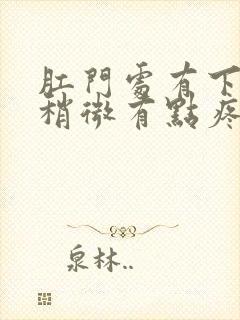 肛門處有下
稍微有點疼
泉林..